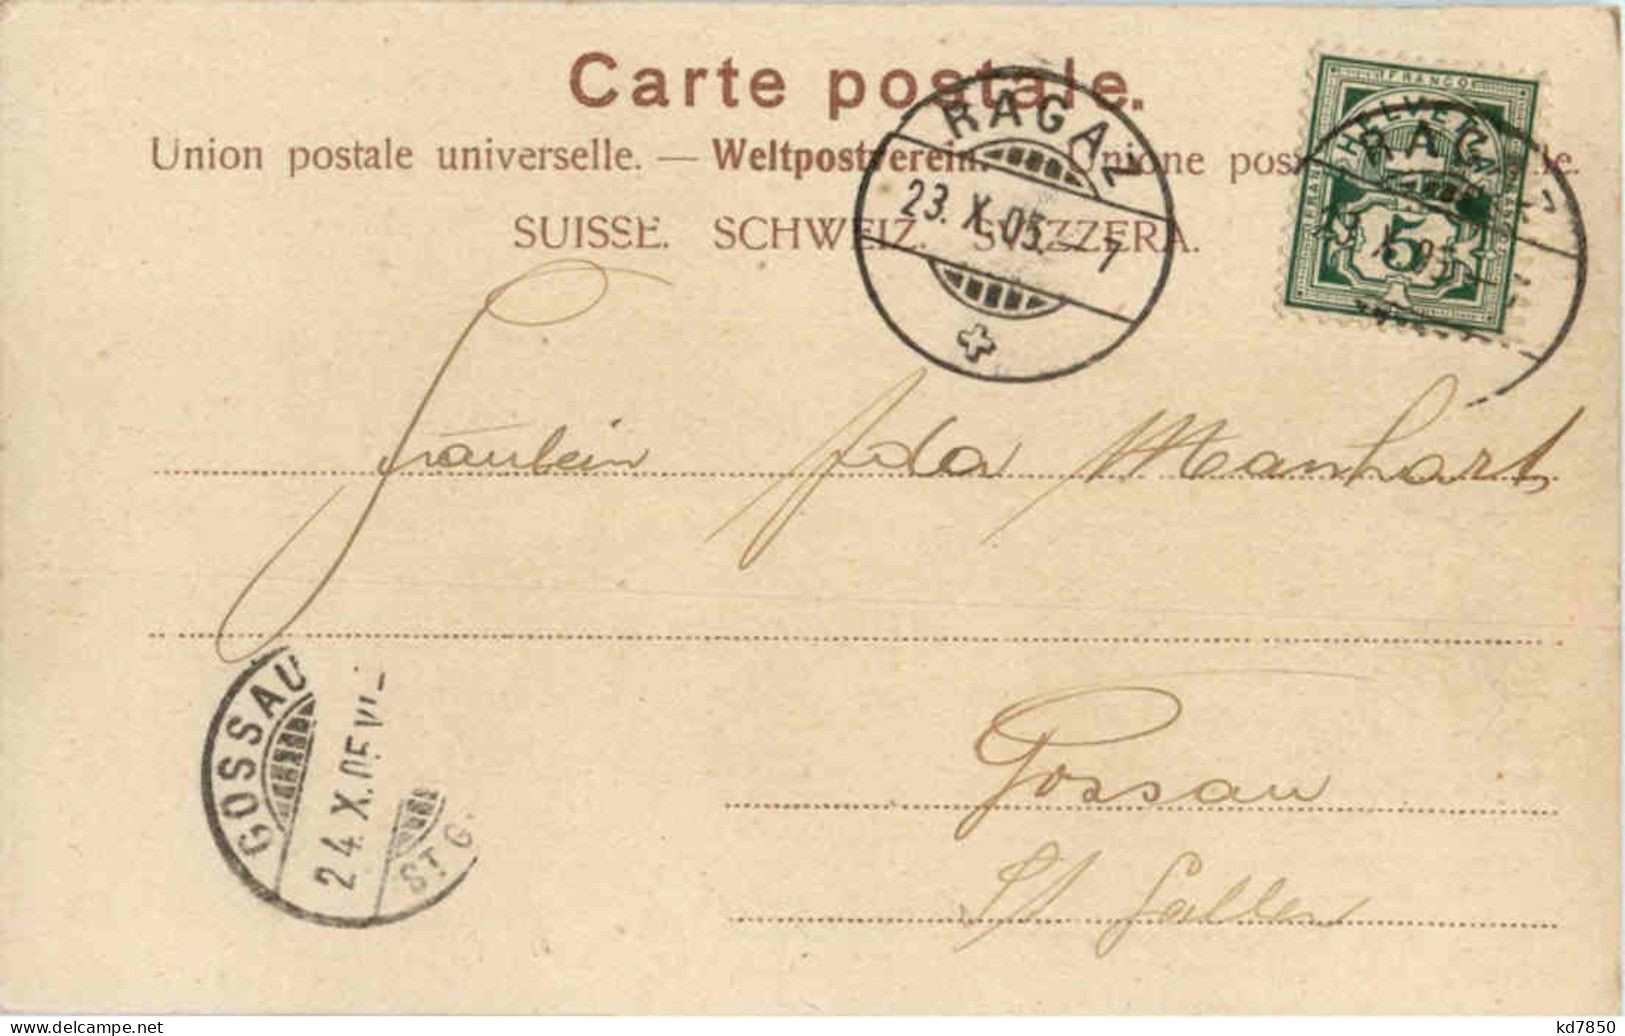 Carte postale.
Union postale universelle. — Weltpostverein. — Unione postale
SUISSE. SCHWEIZ. SVIZZERA.
RAGAZ
23. X. 05. - 7
FRANCO
HELVETIA
5
RAGAZ
23. X. 05. - 7
Fräulein Ida Manhart
Gossau
St Gallen
GOSSAU
24. X. 05 VI -
ST. G.
kd7850